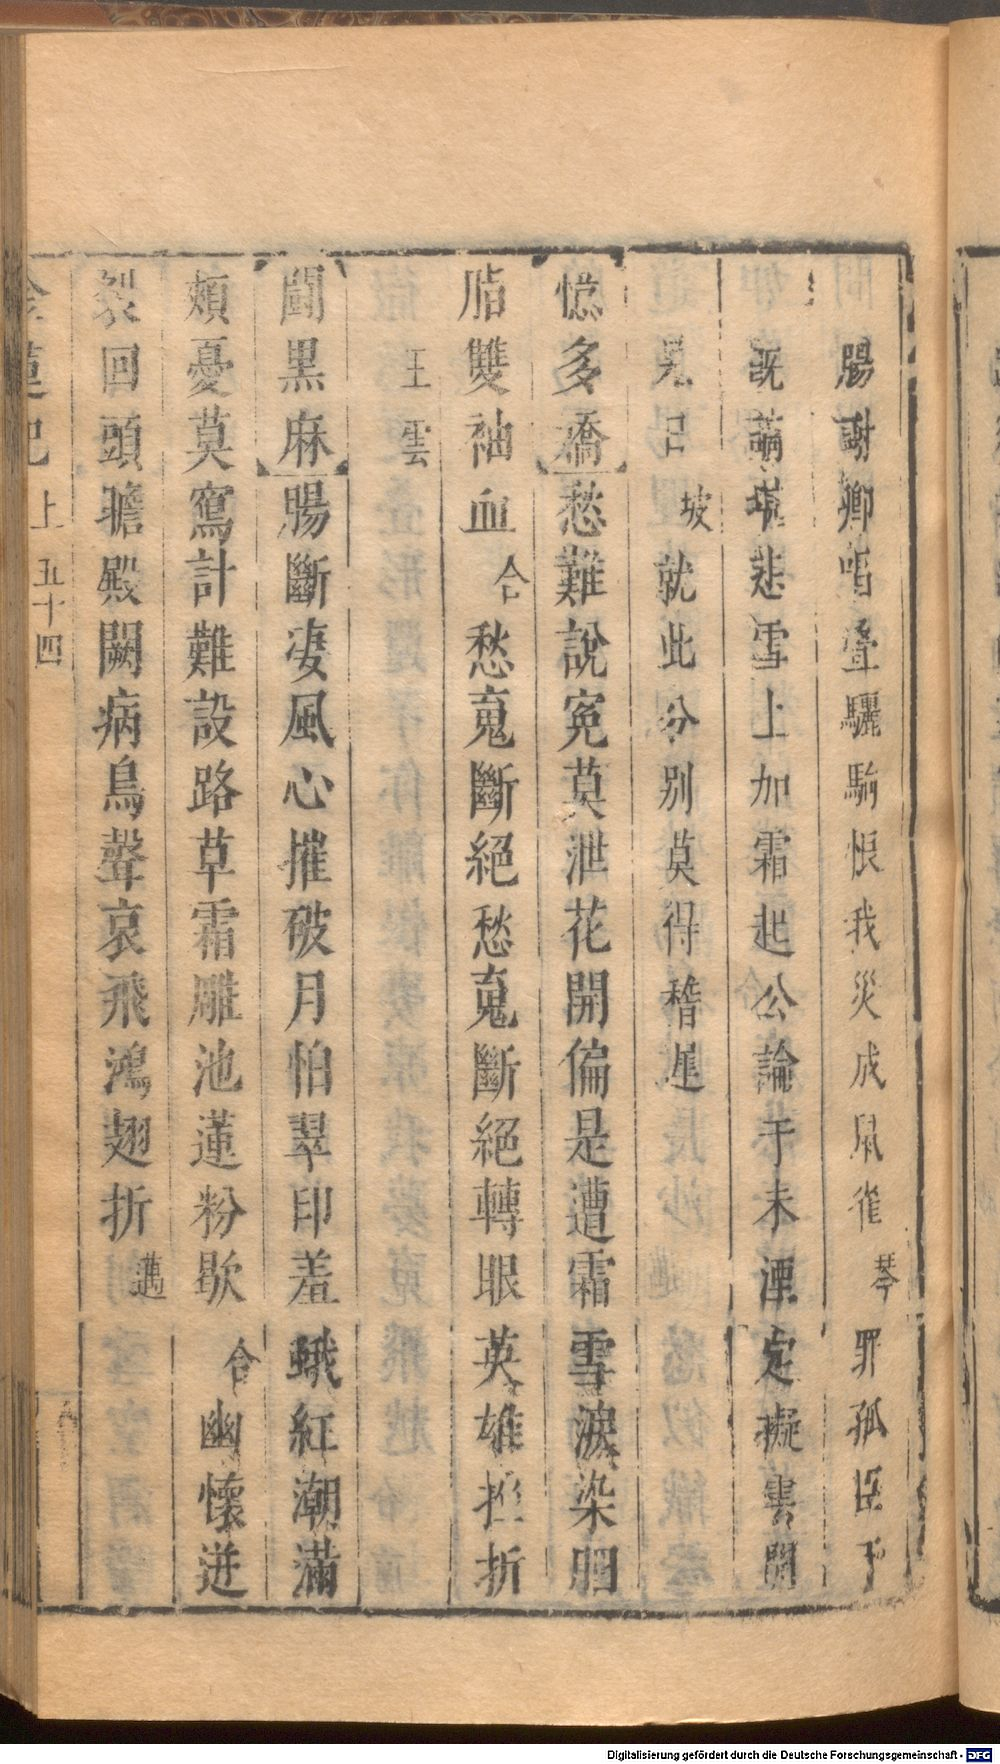 腸謝卿唱疊驪駒恨我災成鼠雀琴罪孤臣下
既繭環悲雪上加霜起公論于未湮定擬雲開
見日坡就此分別莫得稽遲
憶多嬌愁難說冤莫泄花開偏是遭霜雪淚染胭
脂雙袖血合愁䰟斷絕愁䰟斷絕轉眼英雄折
王雲
鬪黑麻腸斷凄風心摧破月怕翠印羞蛾紅潮滿
頰憂莫寫計難設路草霜雕池蓮粉歇合幽懷迸
裂回頭瞻殿闕病鳥聲哀飛鴻翅折邁
金蓮記上五十四
Digitalisierung gefördert durch die Deutsche Forschungsgemeinschaft - DFG